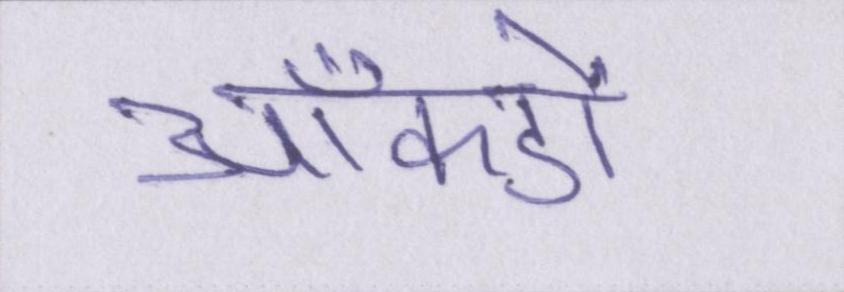 आँकडों